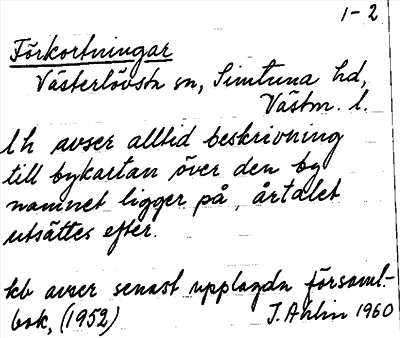 1-2
Förkortningar
Västerlövsta sn, Simtuna hd,
Västm. l.
lh avser alltid beskrivning
till bykartan över den by
namnet ligger på, årtalet
utsättes efter.
kb avser senast upplagda församl.-
bok, (1952) J. Ahlin 1960